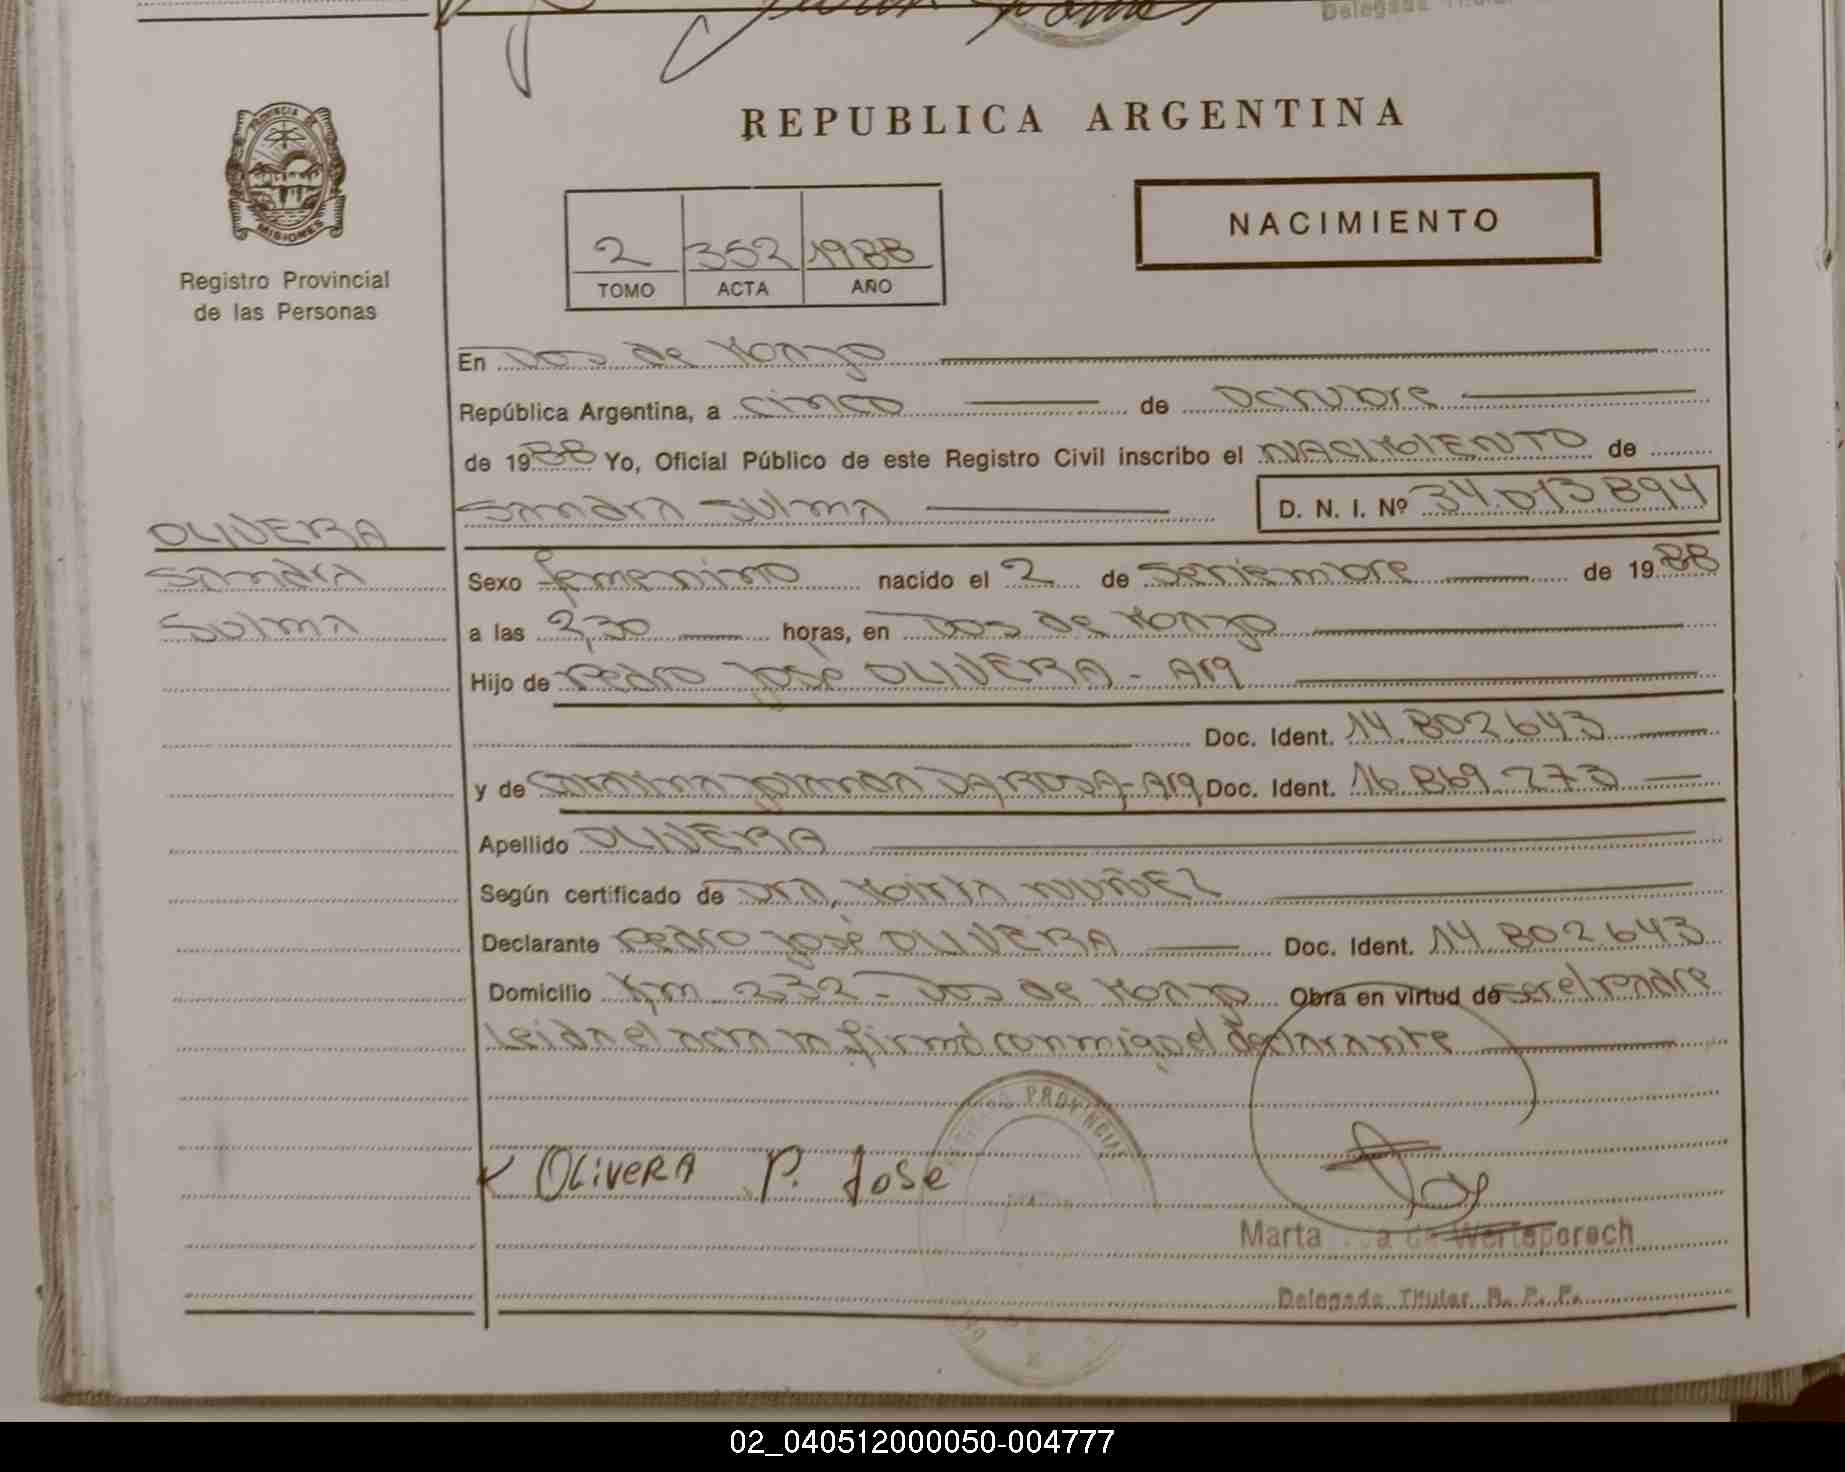 Delegada Titular
REPUBLICA ARGENTINA
PROVINCIA DE
MISIONES
Registro Provincial
de las Personas
NACIMIENTO
2 352 1988
TOMO ACTA AÑO
En Dos de Mayo
República Argentina, a cinco de Octubre
de 1988 Yo, Oficial Público de este Registro Civil inscribo el NACIMIENTO de
Sandra Sulma D. N. I. Nº 34.013.894
OLIVERA
Sandra
Sulma
Sexo femenino nacido el 2 de Setiembre de 1988
a las 2,30 horas, en Dos de Mayo
Hijo de Pedro José OLIVERA - Arg
Doc. Ident. 14.802.643
y de DA ROSA - Arg Doc. Ident. 16.869.273
Apellido OLIVERA
Según certificado de Dra, Mirta NUÑEZ
Declarante Pedro José OLIVERA Doc. Ident. 14.802.643
Domicilio Km 232 - Dos de Mayo Obra en virtud de ser el padre
Leida el acta la firmó conmigo el declarante
PROVINCIAL
OLIVERA P. Jose
Marta a de Werteperoch
Delegada Titular R. P. P.
02_040512000050-004777